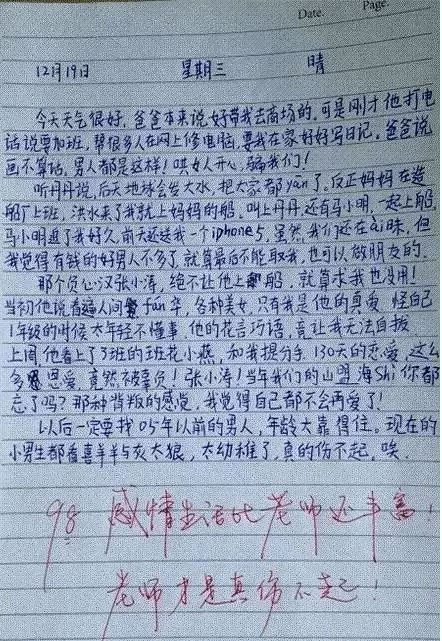 Date.    Page.
12月19日    星期三    晴
今天天气很好,爸爸本来说好带我去商场的,可是刚才他打电
话说要加班,帮很多人在网上修电脑,要我在家好好写日记。爸爸说
画不算话,男人都是这样!哄女人开心,骗我们!
听丹丹说,后天地球会发大水,把大家都yān了,反正妈妈在造
船厂上班,洪水来了我就上妈妈的船,叫上丹丹,还有马小明,一起上船,
马小明追了我好久,前天还送我一个iphone5,虽然我们还在ài昧,但
我觉得有钱的好男人不多了,就算最后不能取我,也可以做朋友的。
那个负心汉张小涛,绝不让他上船,就算求我也没用!
当初他说看遍人间fán华,各种美女,只有我是他的真爱,怪自己
1年级的时候太年轻不懂事,他的花言巧语,竟让我无法自拔
上周他看上了3班的班花小燕,和我提分手,130天的恋爱,这么
多恩爱,竟然被辜负!张小涛!当年我们的山盟海Shi你都
忘了吗?那种背叛的感觉,我觉得自己都不会再爱了!
以后一定要找05年以前的男人,年龄大靠得住。现在的
小男生都看喜羊羊与灰太狼,太幼稚了,真的伤不起,唉.
98 感情生活比老师还丰富!
老师才是真伤不起!